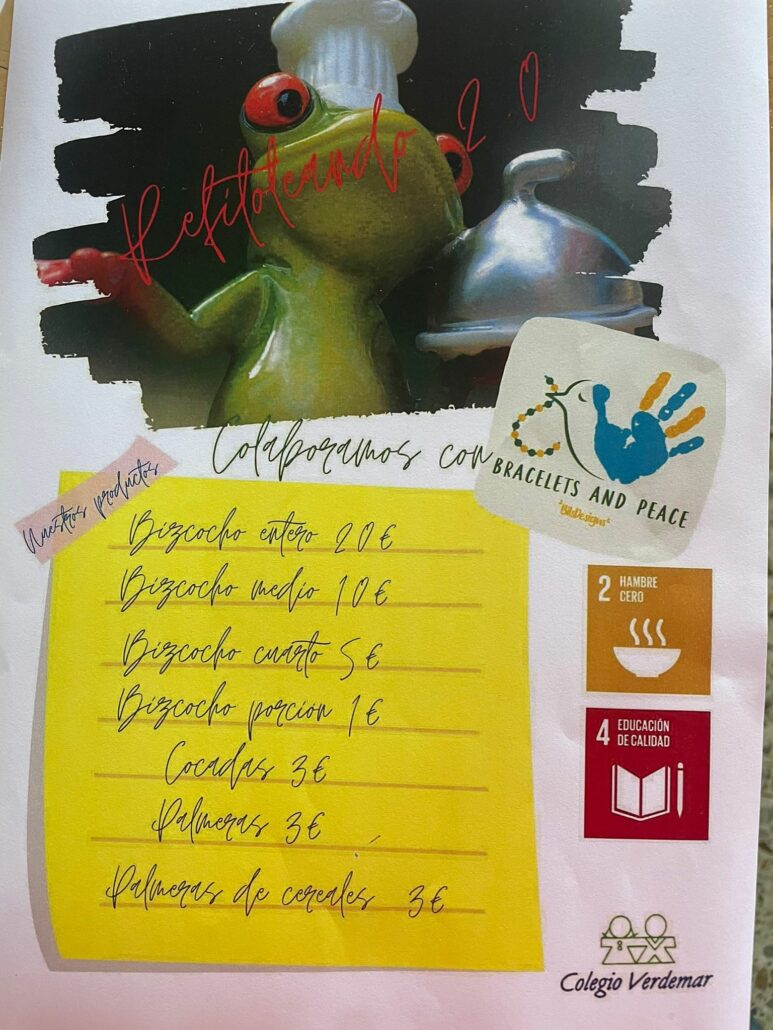 Refitoleando 2.0
Colaboramos con
BRACELETS AND PEACE
BiluDesigns
Nuestros productos
Bizcocho entero 20€
Bizcocho medio 10€
Bizcocho cuarto 5€
Bizcocho porcion 1€
Cocadas 3€
Palmeras 3€
Palmeras de cereales 3€
2 HAMBRE
CERO
4 EDUCACIÓN
DE CALIDAD
Colegio Verdemar